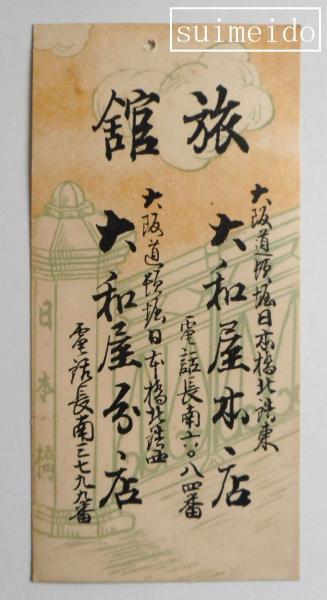 suimeido
旅館
大阪道頓堀日本橋北詰東
大和屋本店
電話長南六〇八四番
大阪道頓堀日本橋北詰西
大和屋分店
電話長南三七九九番
日本橋